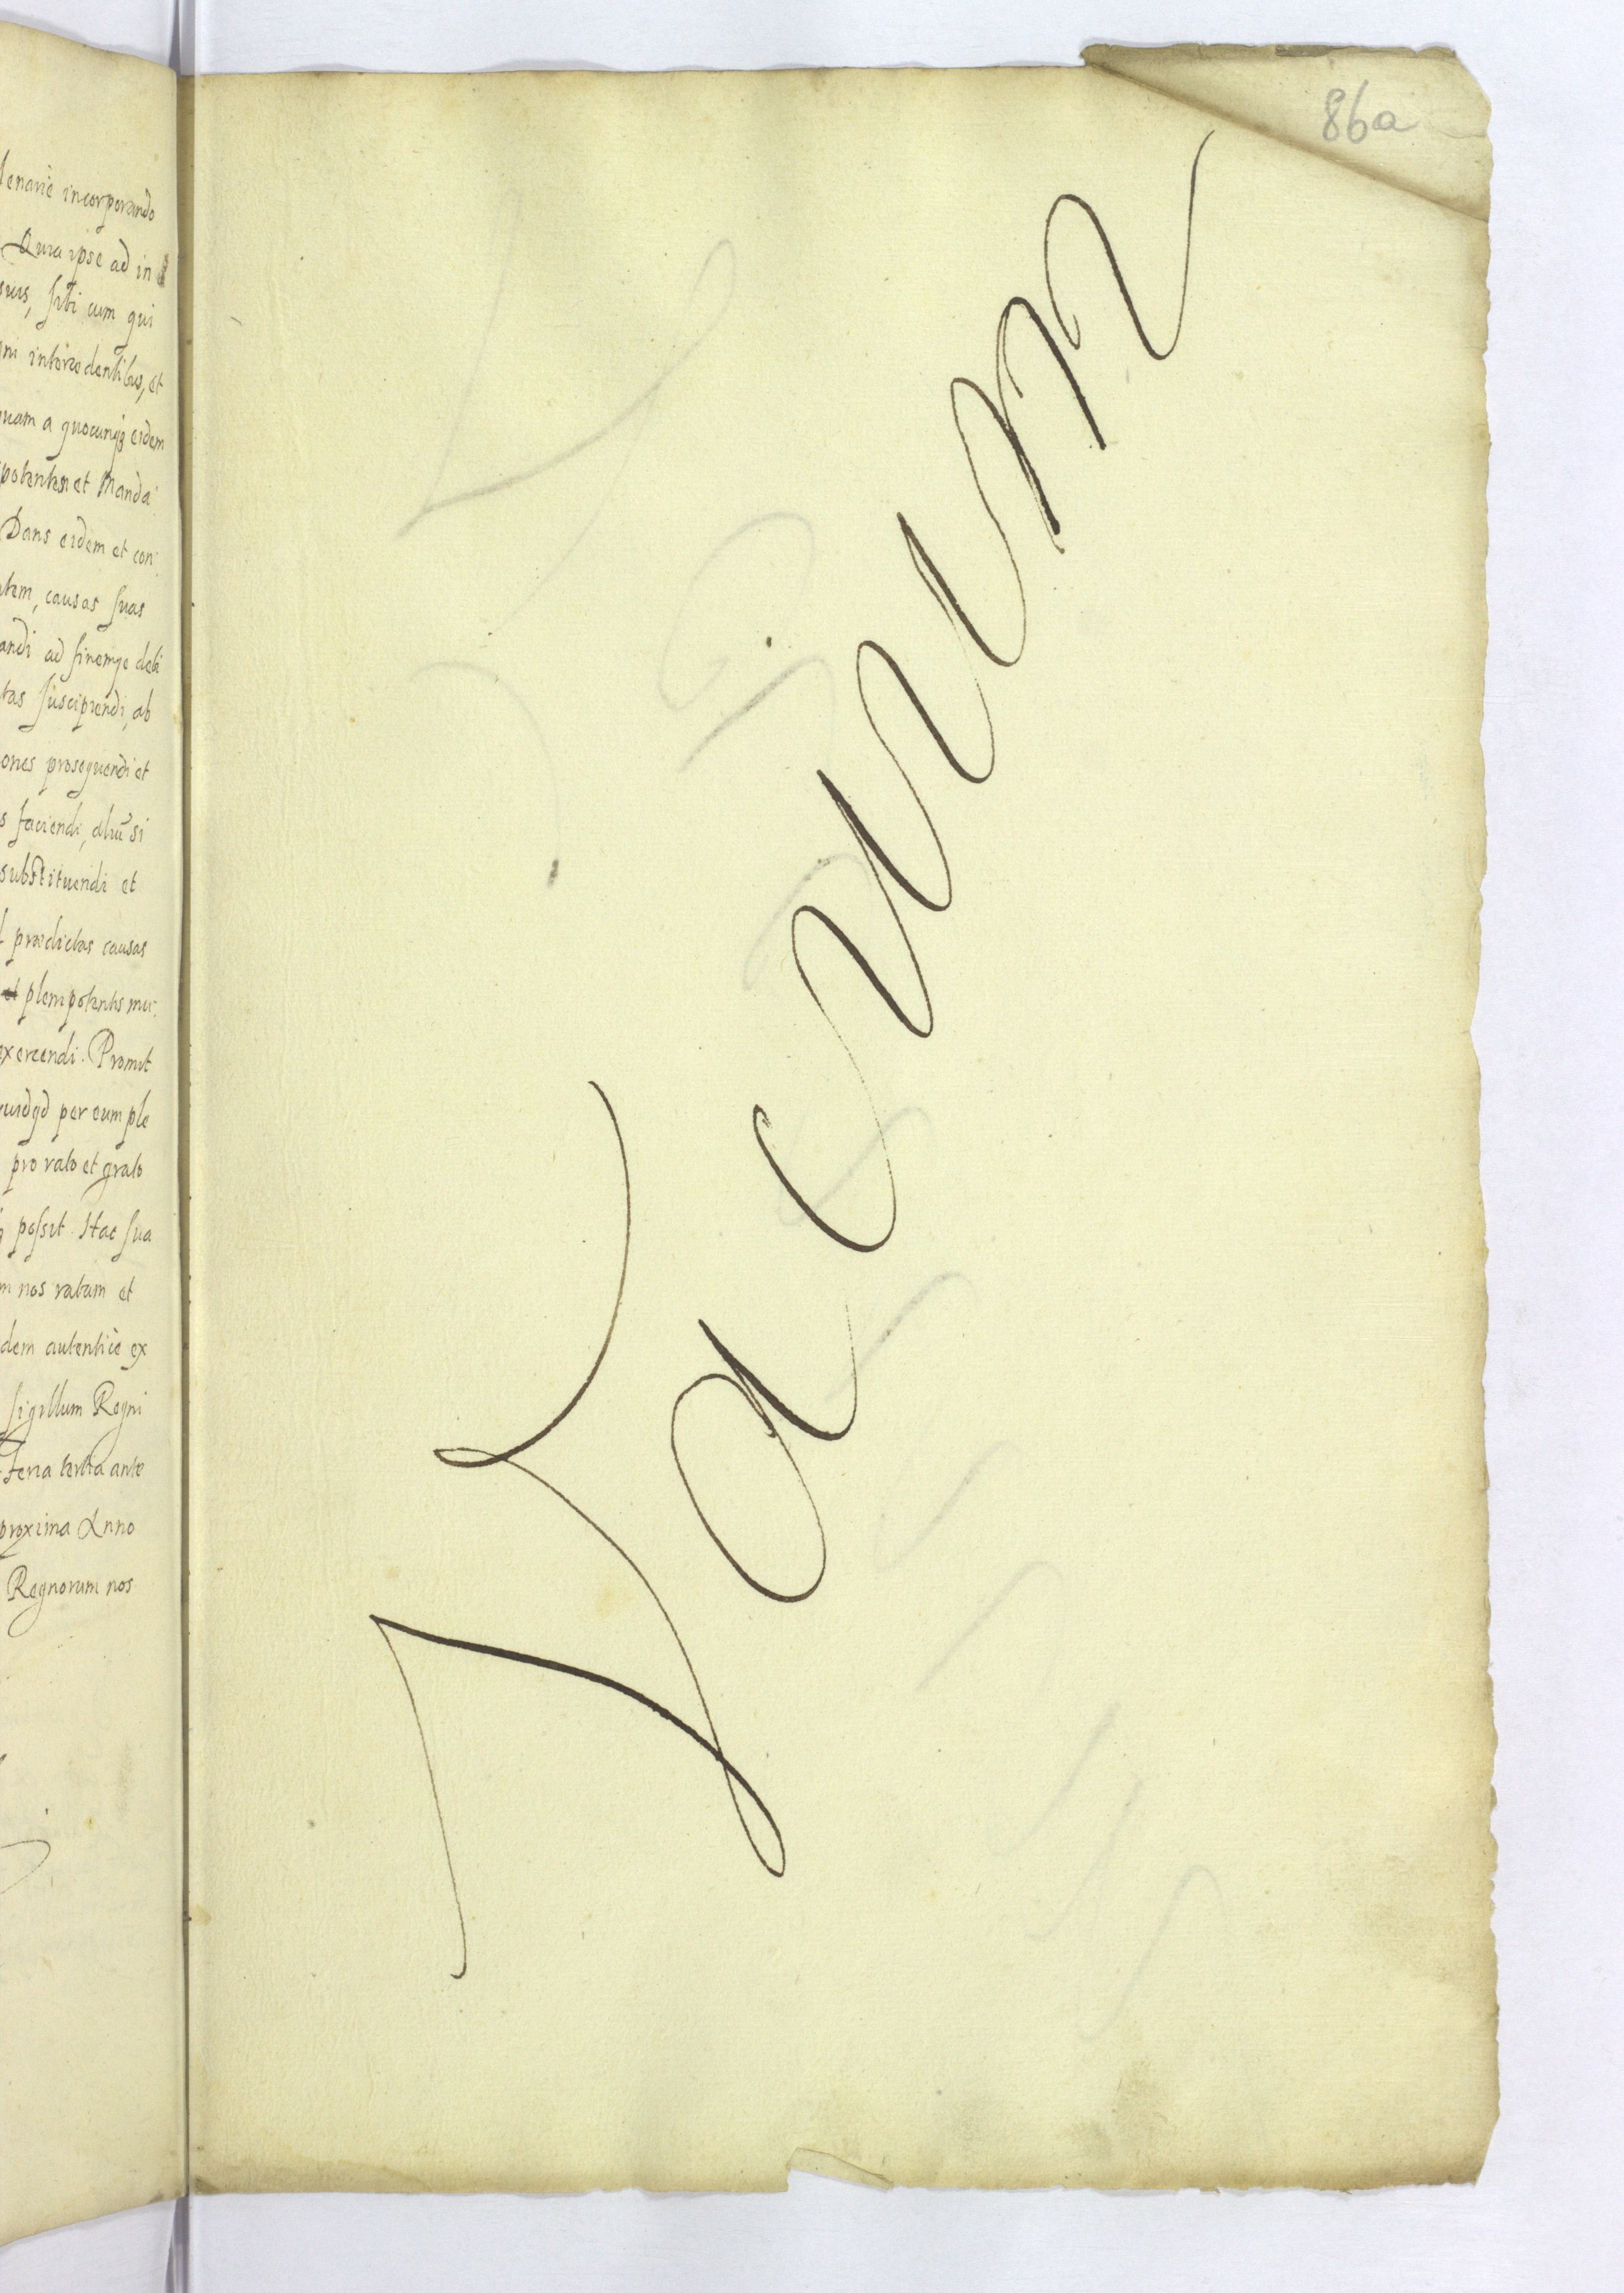 lenarie incorporando
Quia ipse ad in
suis, sibi cum qui
ni intercedentibus, et
quam a quocunq eidem
potentem et Manda
Dans eidem et con
tem, causas suas
andi ad finemqe debi
tas suscipiendi, ab
ones prosequendi et
s faciendi, aliu si
substituendi et
praedictas causas
et plenipotentis mu
exercendi. Promit
uidqd per eum ple
pro rato et grato
possit. Hac sua
m nos ratam et
dem autentice ex
sigillum Regni
feria tertia ante
proxima Anno
Regnorum nos
86a
Vacuum